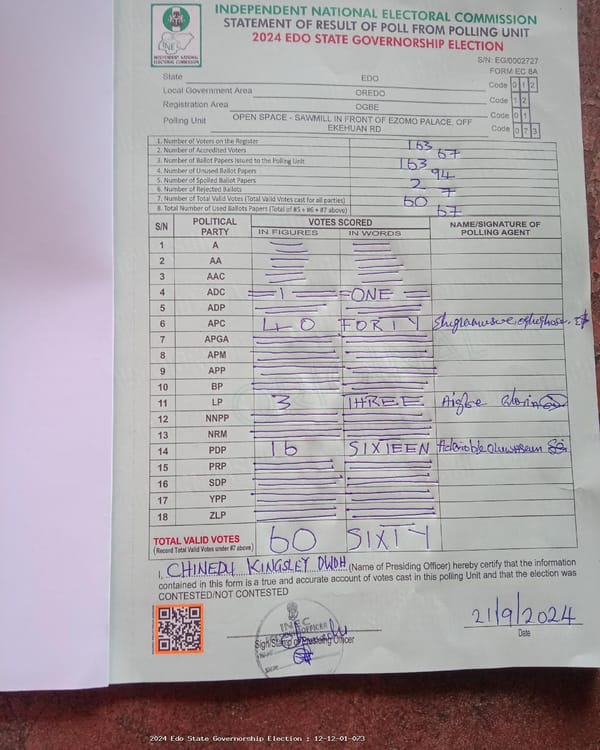 INDEPENDENT NATIONAL ELECTORAL COMMISSION
STATEMENT OF RESULT OF POLL FROM POLLING UNIT
2024 EDO STATE GOVERNORSHIP ELECTION
INEC
INDEPENDENT NATIONAL ELECTORAL COMMISSION
S/N: EG/0002727
FORM EC 8A
State EDO Code 0 1 2
Local Government Area OREDO Code 1 2
Registration Area OGBE Code 0 1
Polling Unit OPEN SPACE - SAWMILL IN FRONT OF EZOMO PALACE, OFF EKEHUAN RD Code 0 7 3
1. Number of Voters on the Register 163
2. Number of Accredited Voters 67
3. Number of Ballot Papers Issued to the Polling Unit 163
4. Number of Unused Ballot Papers 94
5. Number of Spoiled Ballot Papers 2
6. Number of Rejected Ballots 7
7. Number of Total Valid Votes (Total Valid Votes cast for all parties) 60
8. Total Number of Used Ballots Papers (Total of #5 + #6 + #7 above) 67
S/N POLITICAL PARTY VOTES SCORED NAME/SIGNATURE OF POLLING AGENT
IN FIGURES IN WORDS
1 A
2 AA
3 AAC
4 ADC 1 ONE
5 ADP
6 APC 40 FORTY
7 APGA
8 APM
9 APP
10 BP
11 LP 3 THREE Aigbe
12 NNPP
13 NRM
14 PDP 16 SIXTEEN
15 PRP
16 SDP
17 YPP
18 ZLP
TOTAL VALID VOTES 60 SIXTY
(Record Total Valid Votes under #7 above)
I, CHINEDU KINGSLEY (Name of Presiding Officer) hereby certify that the information
contained in this form is a true and accurate account of votes cast in this polling Unit and that the election was
CONTESTED/NOT CONTESTED
INEC
Sign/Stamp of Presiding Officer
21/9/2024
Date
2024 Edo State Governorship Election : 12-12-01-073